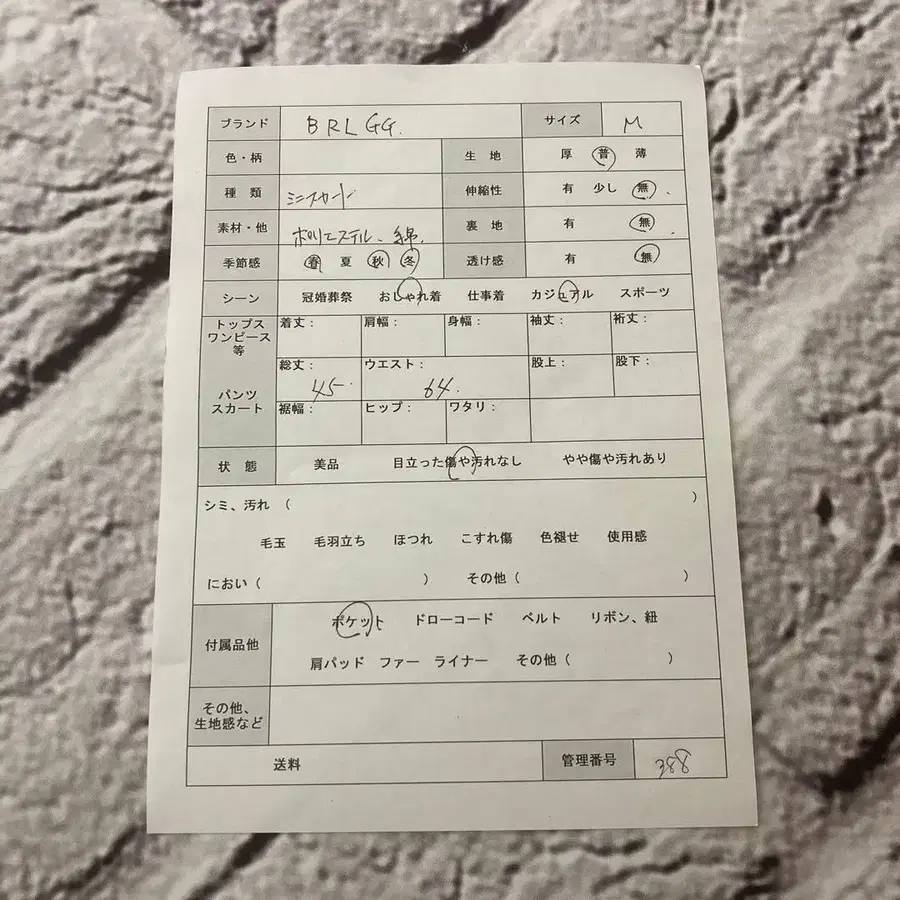 ブランド BRLGG. サイズ M
色・柄 生 地 厚 普 薄
種 類 ミニスカート 伸縮性 有 少し 無
素材・他 ポリエステル、綿. 裏 地 有 無
季節感 春 夏 秋 冬 透け感 有 無
シーン 冠婚葬祭 おしゃれ着 仕事着 カジュアル スポーツ
トップス 着丈： 肩幅： 身幅： 袖丈： 裄丈：
ワンピース
等
総丈： 45. ウエスト： 64. 股上： 股下：
パンツ
スカート 裾幅： ヒップ： ワタリ：
状 態 美品 目立った傷や汚れなし やや傷や汚れあり
シミ、汚れ （ ）
毛玉 毛羽立ち ほつれ こすれ傷 色褪せ 使用感
におい（ ） その他（ ）
付属品他 ポケット ドローコード ベルト リボン、紐
肩パッド ファー ライナー その他（ ）
その他、
生地感など
送料 管理番号 388